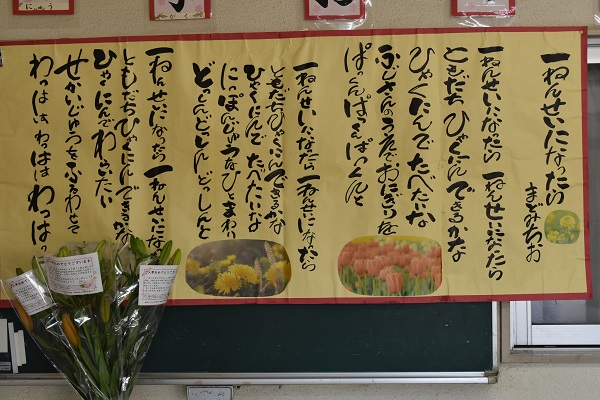 にゅう
がく
一ねんせいになったら
まどみちお
一ねんせいになったら 一ねんせいになったら
ともだちひゃくにんできるかな
ひゃくにんでたべたいな
ふじさんのうえでおにぎりを
ぱっくんぱっくんぱっくんと
一ねんせいになったら 一ねんせいになったら
ともだちひゃくにんできるかな
ひゃくにんで
にっぽんじゅうをひとまわり
どっしんどっしんどっしんと
一ねんせいになったら 一ねんせいにな
ともだちひゃくにんできるかな
ひゃくにんでわらいたい
せかいじゅうをふるわせて
わっはは わっはは わっはっ